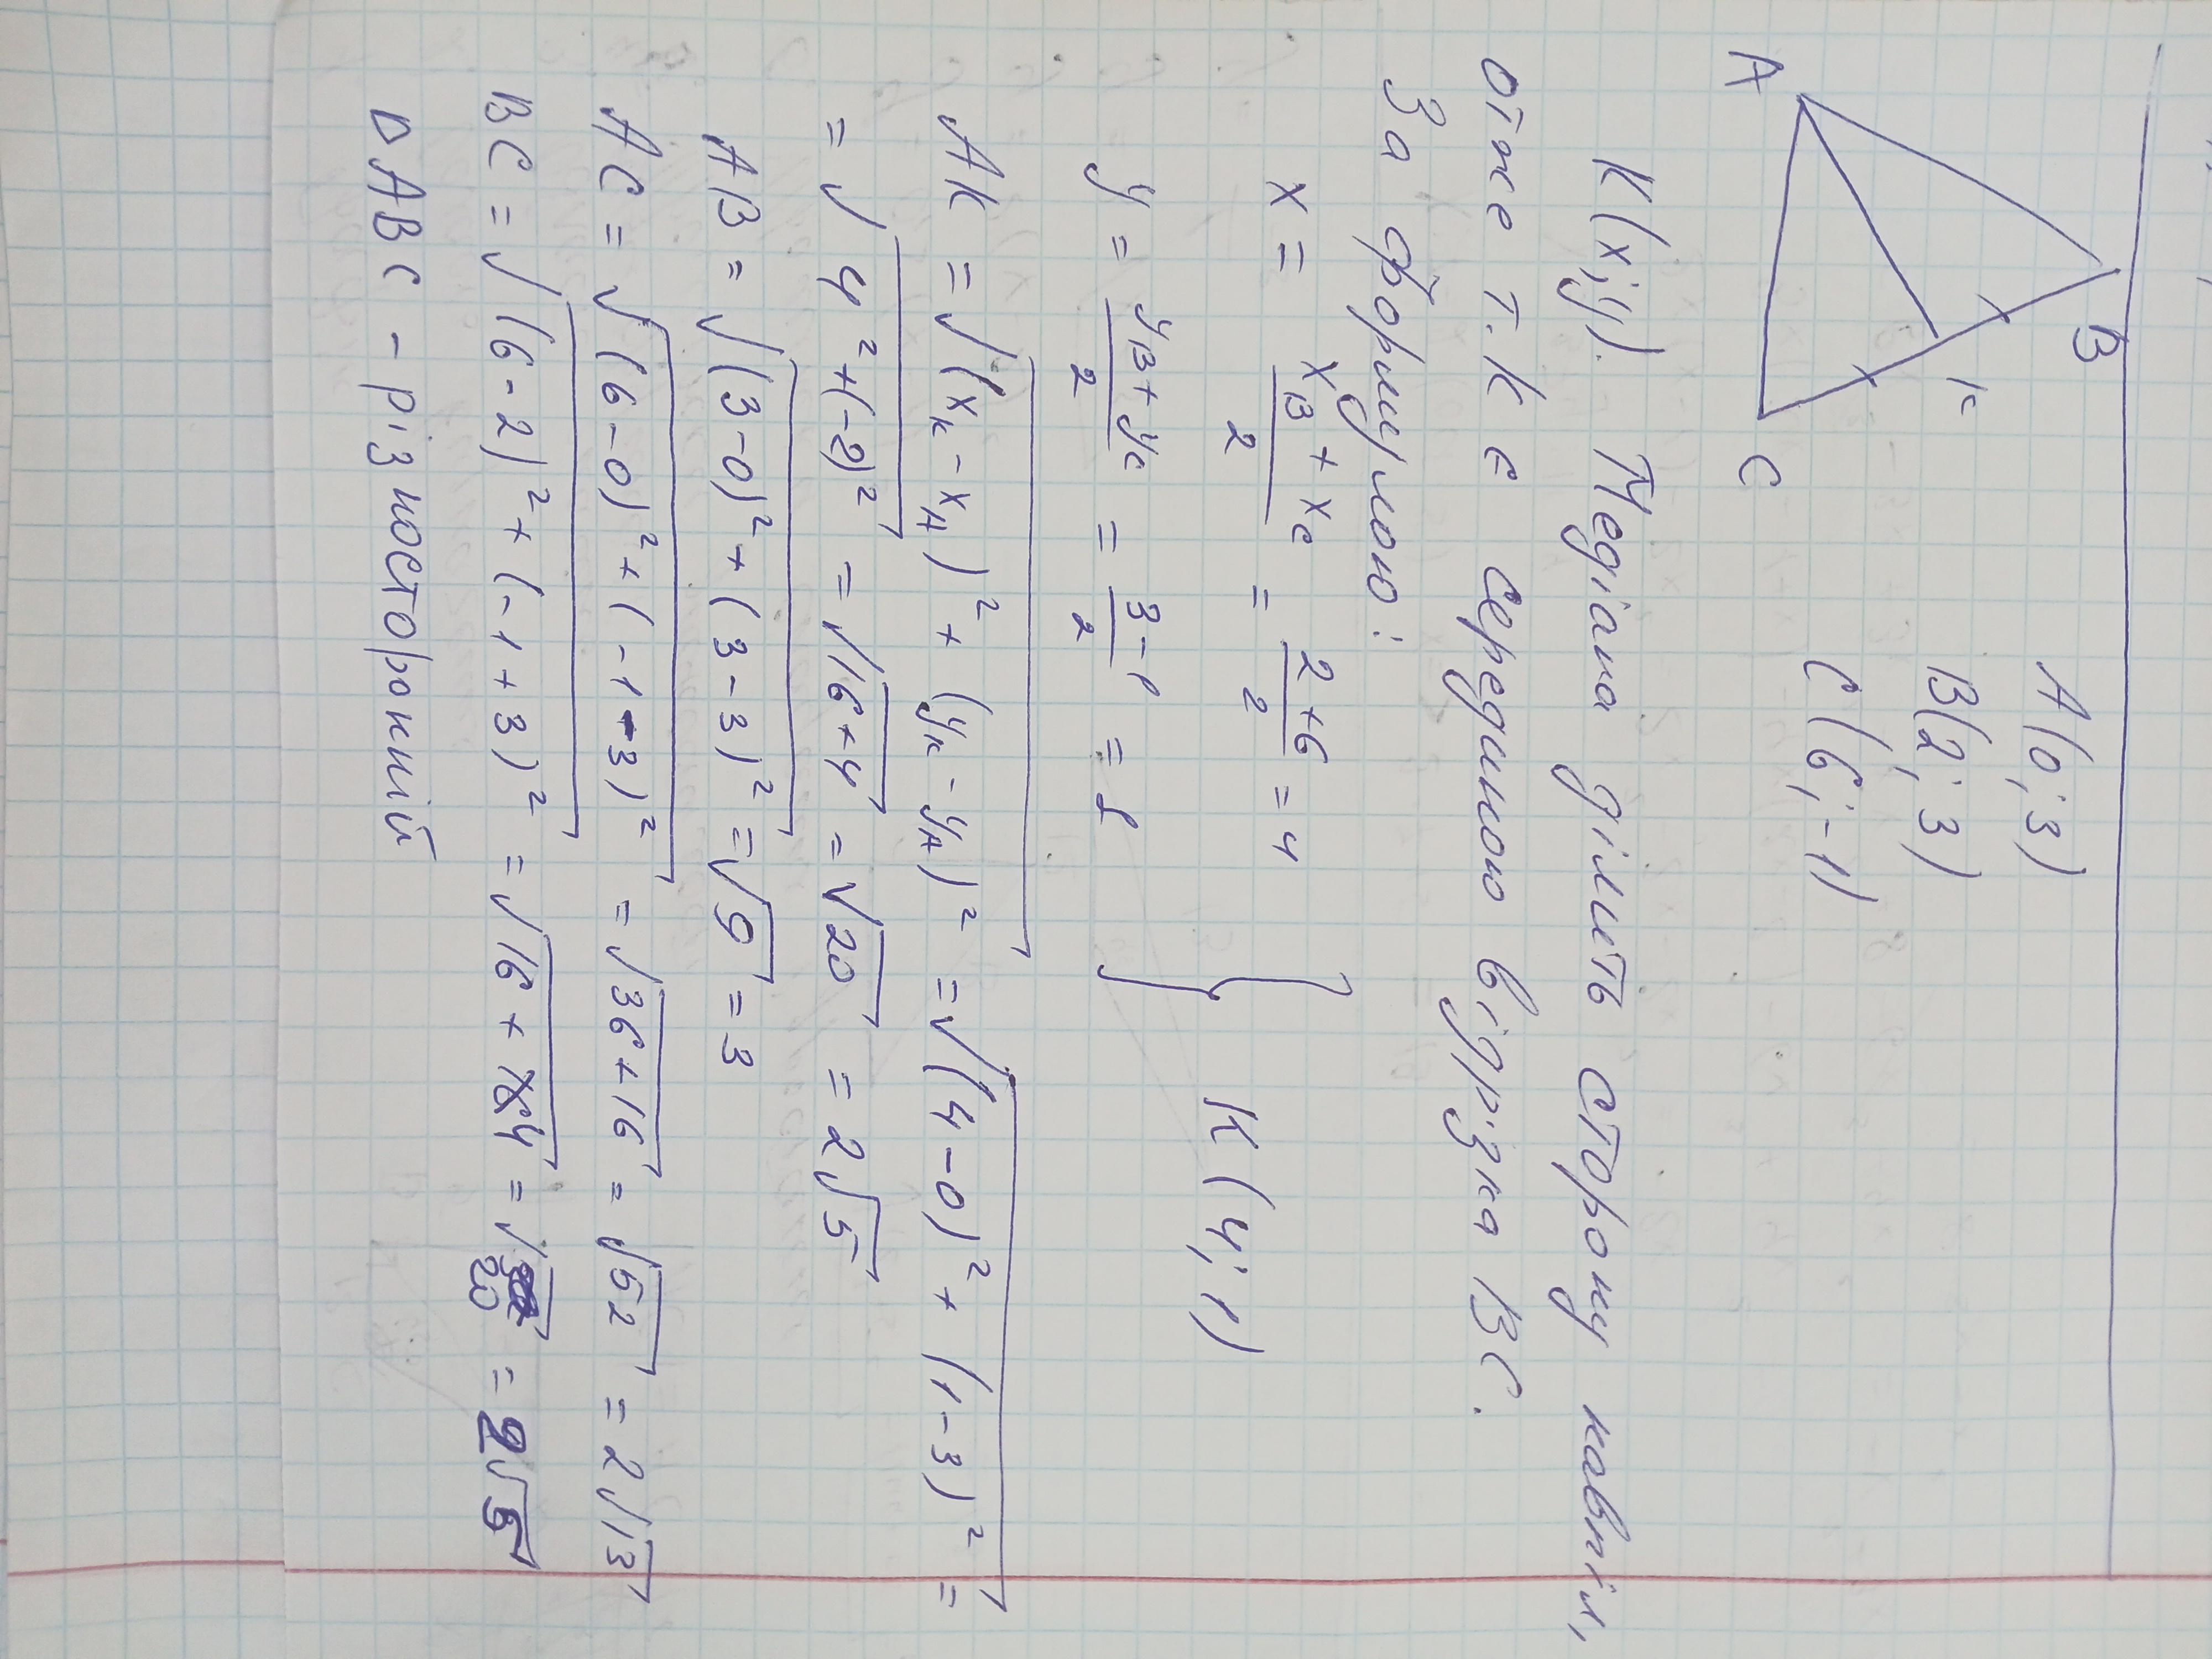 A B K C
A(0; 3)
B(2; 3)
C(6; -1)
K(x; y). Медіана ділить сторону навпіл,
отже т. K є серединою відрізка BC.
За формулою:
x = (x_B + x_C)/2 = (2+6)/2 = 4
y = (y_B + y_C)/2 = (3-1)/2 = 1 } K(4; 1)
AK = √((x_K - x_A)² + (y_K - y_A)²) = √((4-0)² + (1-3)²) =
= √(4² + (-2)²) = √(16+4) = √20 = 2√5
AB = √((3-0)² + (3-3)²) = √9 = 3
AC = √((6-0)² + (-1-3)²) = √(36+16) = √52 = 2√13
BC = √((6-2)² + (-1+3)²) = √(16+4) = √20 = 2√5
△ABC - різносторонній